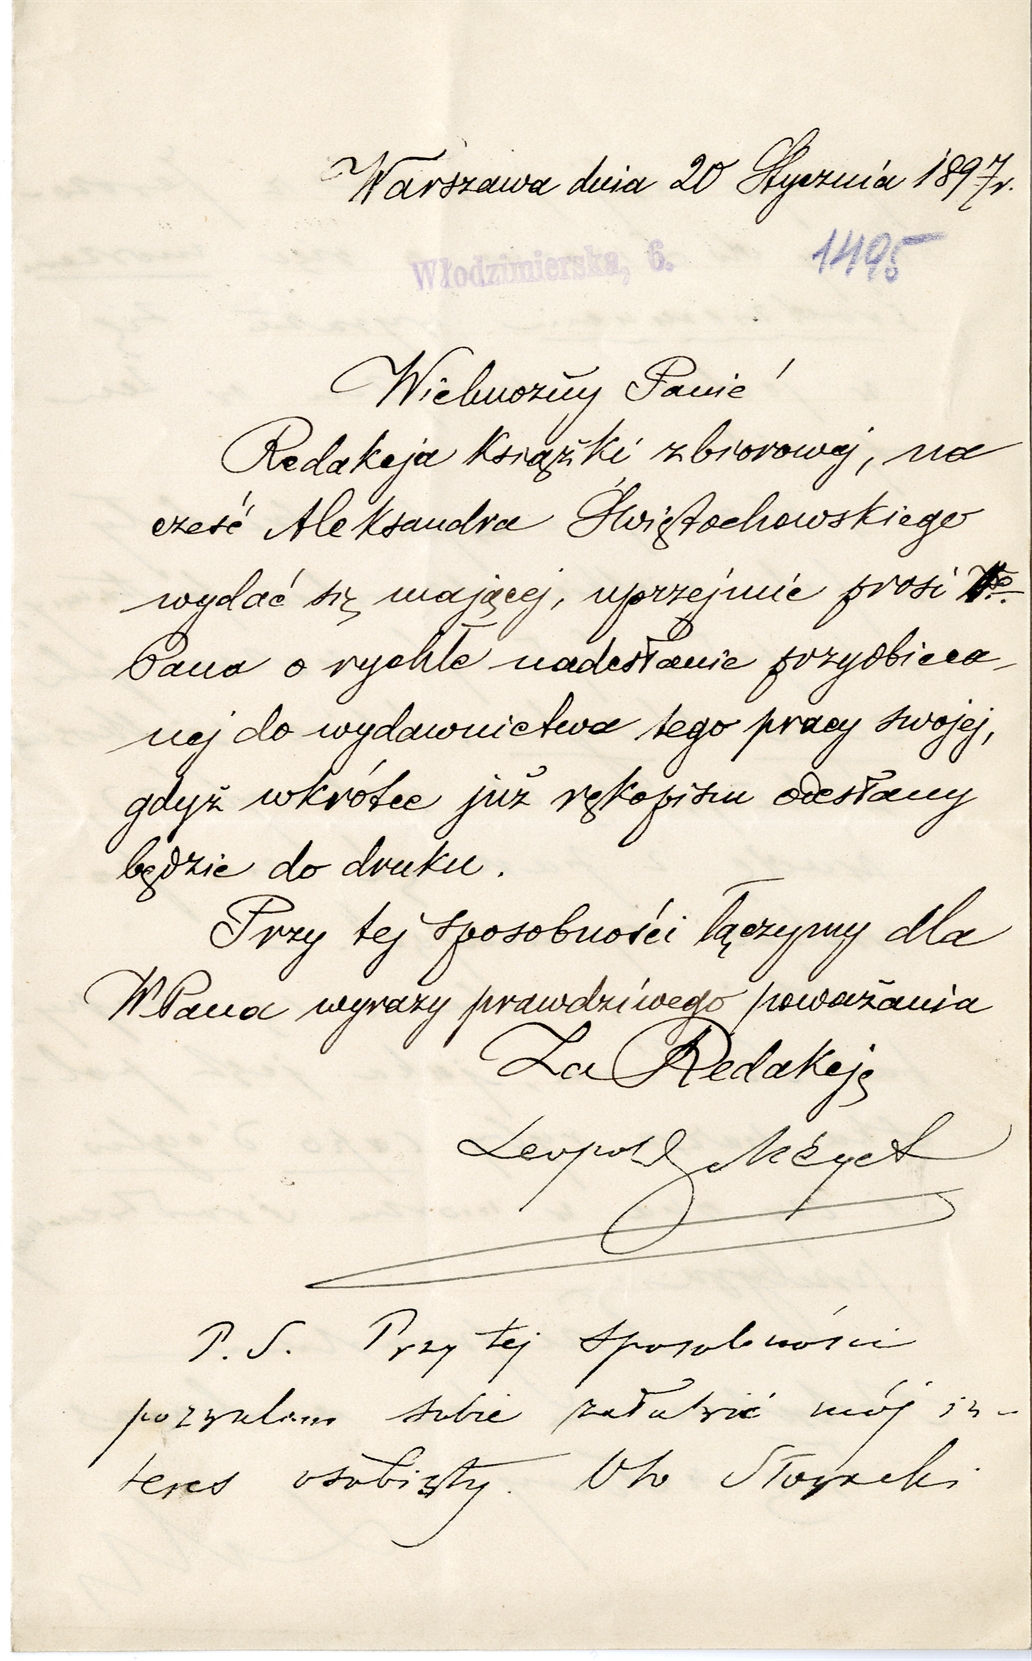 Warszawa dnia 20 Stycznia 1897 r.
Włodzimierska, 6.
1495
Wielmożny Panie!
Redakcja Książki zbiorowej, na
cześć Aleksandra Świętochowskiego
wydać się mającej, uprzejmie prosi
Pana o rychłe nadesłanie przyobieca-
nej do wydawnictwa tego pracy swojej,
gdyż wkrótce już rękopism odesłany
będzie do druku.
Przy tej sposobności łączymy dla
WPana wyrazy prawdziwego poważania
Za Redakcję
Leopold Méyet
P. S. Przy tej sposobności
pozwalam sobie załatwić mój in-
teres osobisty. Oto Słowacki